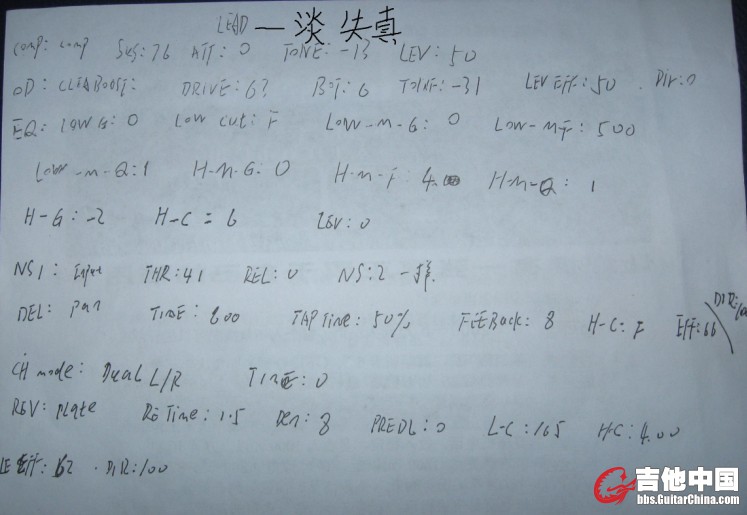 LEAD — 淡失真
comp: comp SUS: 76 ATT: 0 TONE: -13 LEV: 50
OD: CLEABOOST: DRIVE: 63 BOT: 6 TONE: -31 LEV Eff: 50 . Dir: 0
EQ: LOW G: 0 LOW CUT: F LOW-M-G: 0 LOW-MF: 500
LOW-M-Q: 1 H-M-G: 0 H-M-F: 4.00 H-M-Q: 1
H-G: -2 H-C = 6 LEV: 0
NS1: Input THR: 41 REL: 0 NS: 2 一样.
DEL: Pan TIME: 800 TAP Time: 50% FEEBack: 8 H-C: F Eff: 66 DIR:
CH mode: Dual L/R TIME: 0
REV: Plate Re Time: 1.5 Den: 8 PREDL: 0 L-C: 165 H-C: 4.00
LE Eff: 62 . DIR: 100
吉他中国
bbs.GuitarChina.com